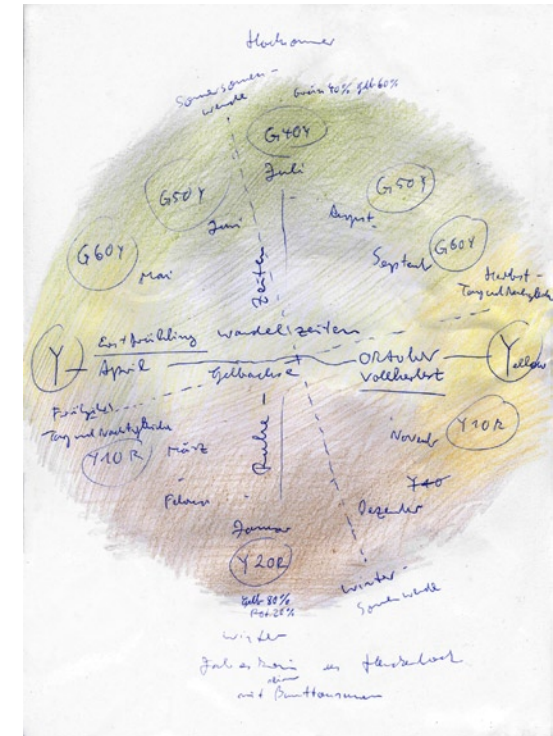 Hochsommer
Sommersonnen-
wende
Grün 40% Gelb 60%
G40Y
Juli
G50Y
G50Y
Juni
August
G60Y
G60Y
Mai
September
Herbst-
Tag und Nachtgleiche
Zeiten
Erstfrühling wandelszeiten
Y
April
Gelbachse
Oktober
Vollherbst
Yellow
Frühjahr
Tag und Nachtgleiche
Y10R
März
Ruhe-
November
Y10R
Februar
Y40
Dezember
Januar
Y20R
Winter-
Sonnenwende
Gelb 80%
Rot 20%
Winter
Jahreskreis
mit